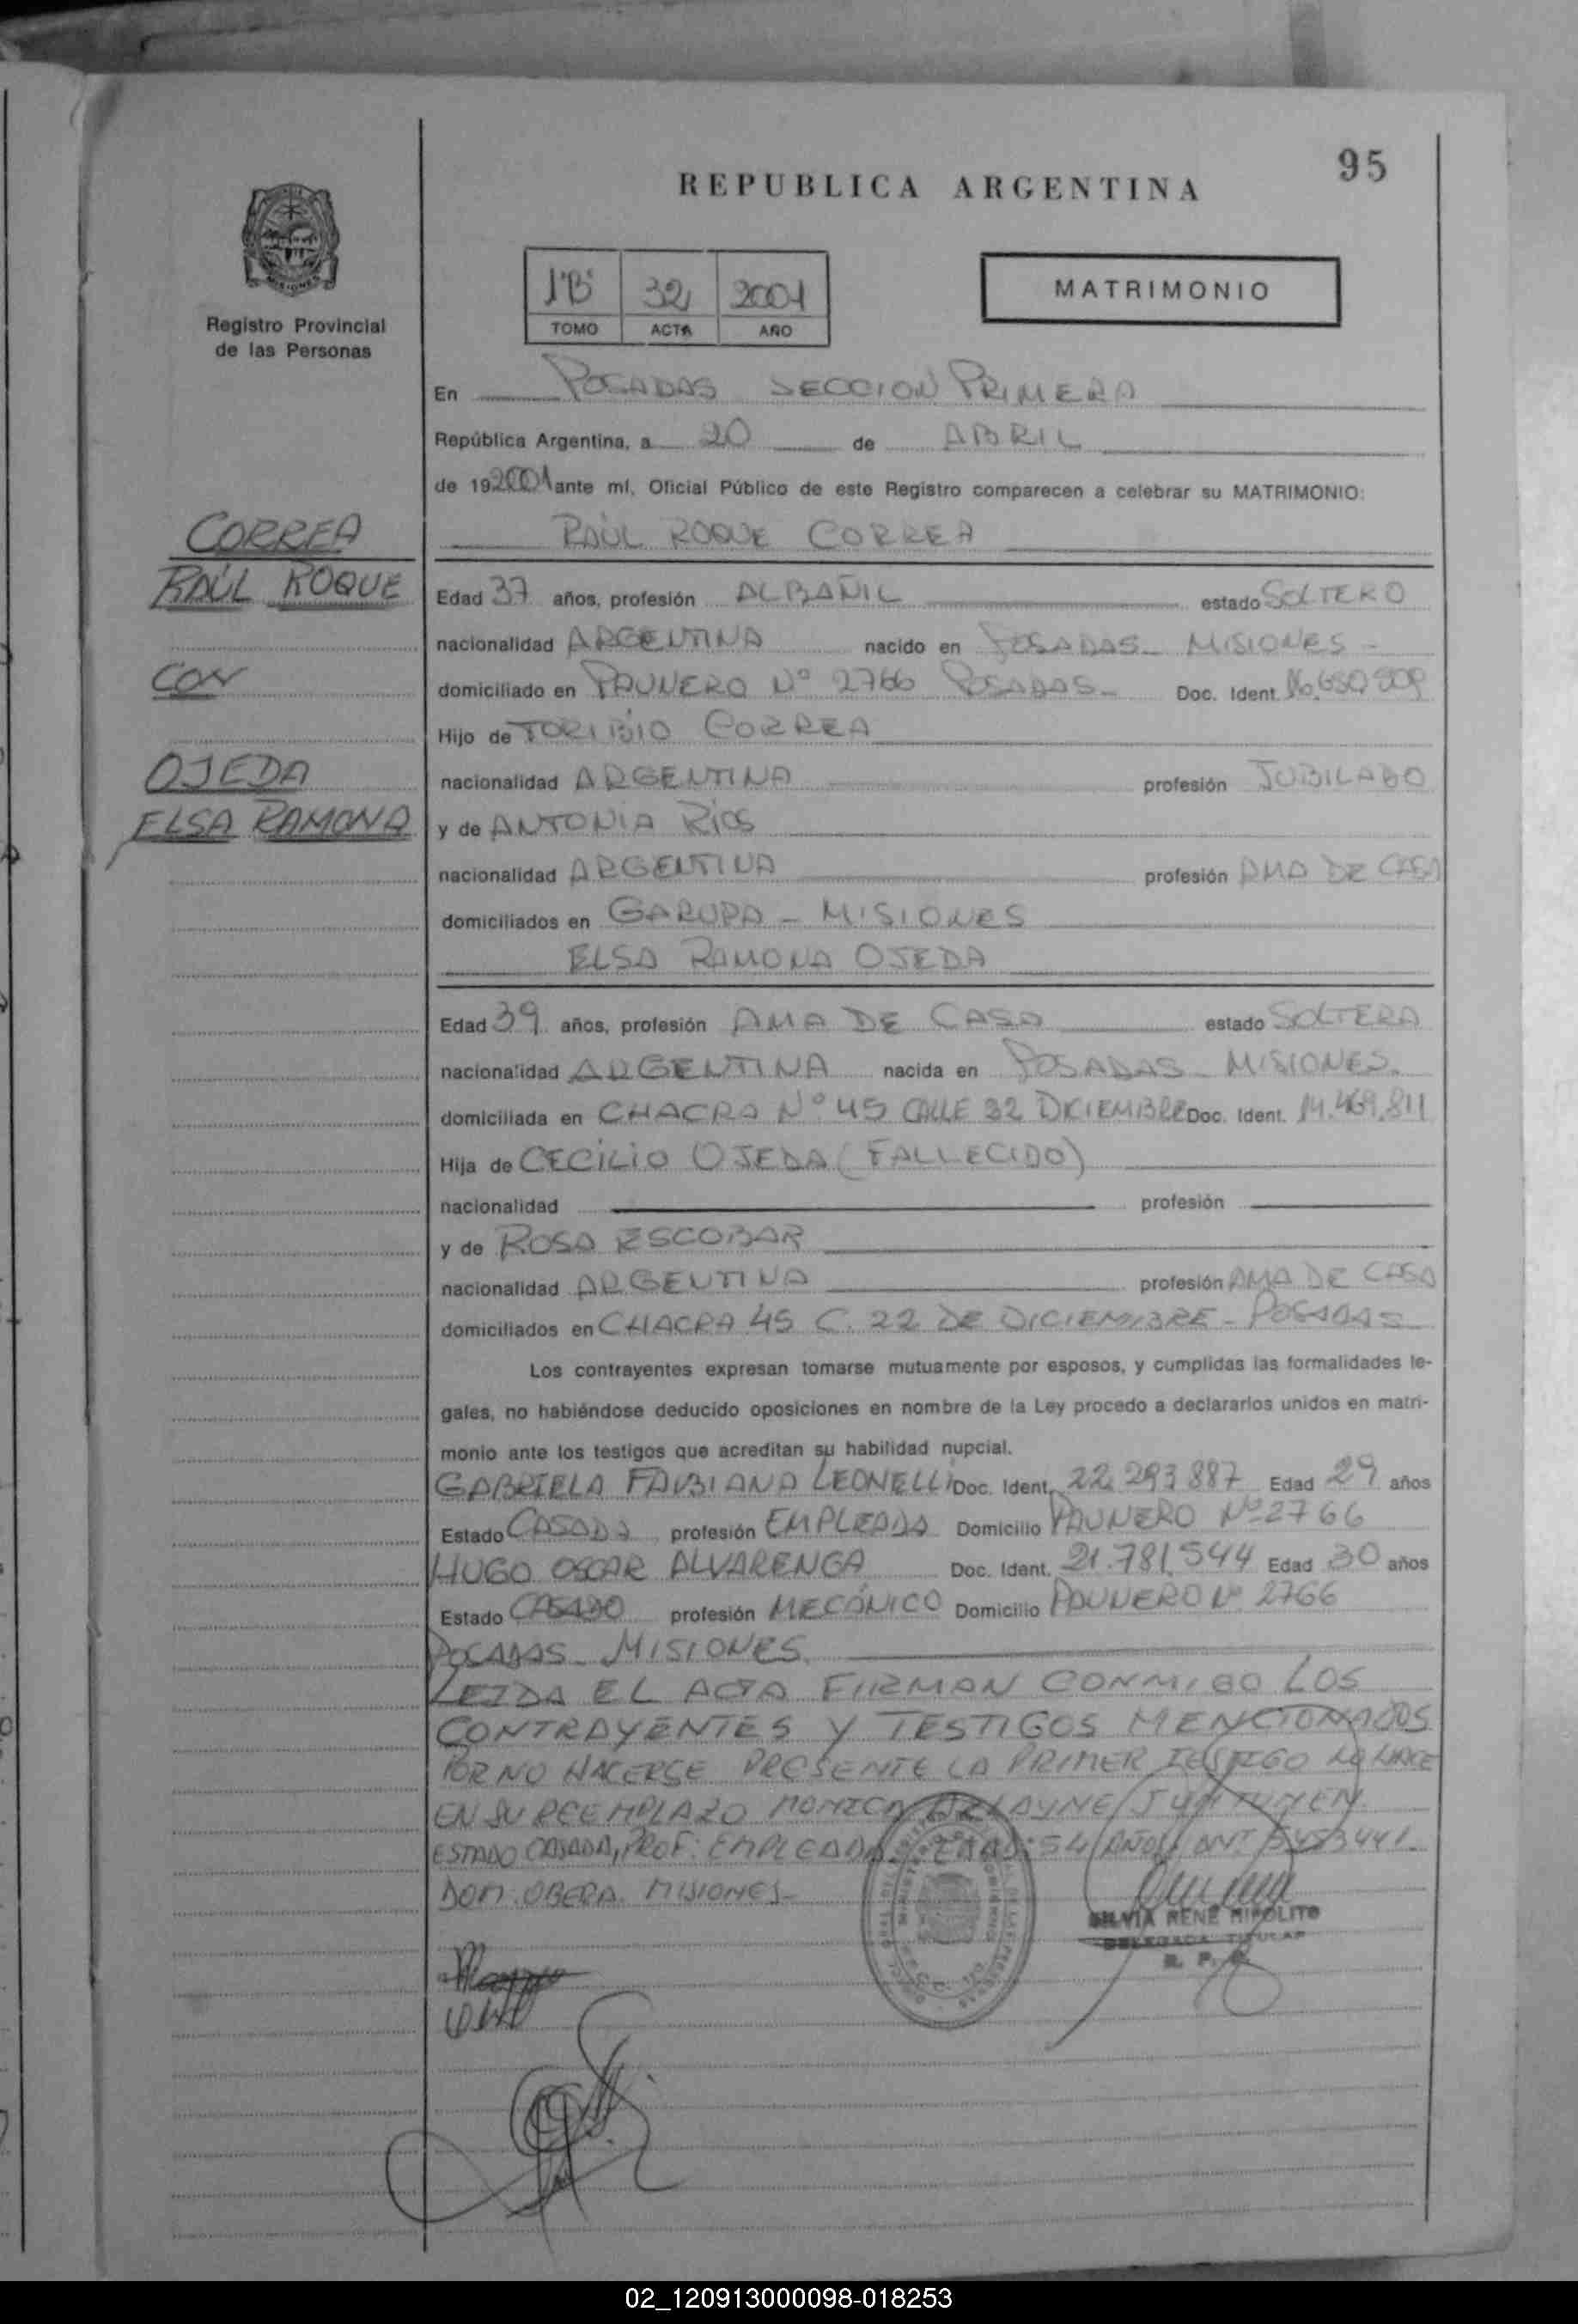 95
REPUBLICA ARGENTINA
MISIONES
Registro Provincial
de las Personas
1"B" 32 2001
TOMO ACTA AÑO
MATRIMONIO
En POSADAS SECCION PRIMERA
República Argentina, a 20 de ABRIL
de 192001 ante mí, Oficial Público de este Registro comparecen a celebrar su MATRIMONIO:
RAÚL ROQUE CORREA
CORREA
RAÚL ROQUE
CON
OJEDA
ELSA RAMONA
Edad 37 años, profesión ALBAÑIL estado SOLTERO
nacionalidad ARGENTINA nacido en POSADAS - MISIONES -
domiciliado en PAUNERO Nº 2766 POSADAS - Doc. Ident.
Hijo de TORIBIO CORREA
nacionalidad ARGENTINA profesión JUBILADO
y de ANTONIA RÍOS
nacionalidad ARGENTINA profesión AMA DE CASA
domiciliados en GARUPA - MISIONES
ELSA RAMONA OJEDA
Edad 39 años, profesión AMA DE CASA estado SOLTERA
nacionalidad ARGENTINA nacida en POSADAS - MISIONES.
domiciliada en CHACRA Nº 45 CALLE 22 DICIEMBRE Doc. Ident. 14.469.811
Hija de CECILIO OJEDA (FALLECIDO)
nacionalidad profesión
y de ROSA ESCOBAR
nacionalidad ARGENTINA profesión AMA DE CASA
domiciliados en CHACRA 45 C. 22 DE DICIEMBRE - POSADAS -
Los contrayentes expresan tomarse mutuamente por esposos, y cumplidas las formalidades le-
gales, no habiéndose deducido oposiciones en nombre de la Ley procedo a declararlos unidos en matri-
monio ante los testigos que acreditan su habilidad nupcial.
GABRIELA FABIANA LEONELLI Doc. Ident. 22.293.887 Edad 29 años
Estado CASADA profesión EMPLEADA Domicilio PAUNERO Nº 2766
HUGO OSCAR ALVARENGA Doc. Ident. 21.781.544 Edad 30 años
Estado CASADO profesión MECÁNICO Domicilio PAUNERO Nº 2766
POSADAS - MISIONES.
LEIDA EL ACTA FIRMAN CONMIGO LOS
CONTRAYENTES Y TESTIGOS MENCIONADOS
POR NO HACERSE PRESENTE LA PRIMER TESTIGO LO HACE
EN SU REEMPLAZO MONICA
ESTADO CASADA, PROF: EMPLEADA. EDAD: 54 AÑOS
DOM. OBERA. MISIONES -
SILVIA RENE HIPOLITO
DELEGADA TITULAR
R. P. P.
02_120913000098-018253